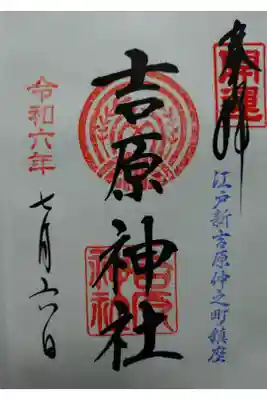 開運
奉拝
江戸新吉原仲之町鎮座
吉原神社
吉原神社
令和六年
七月六日